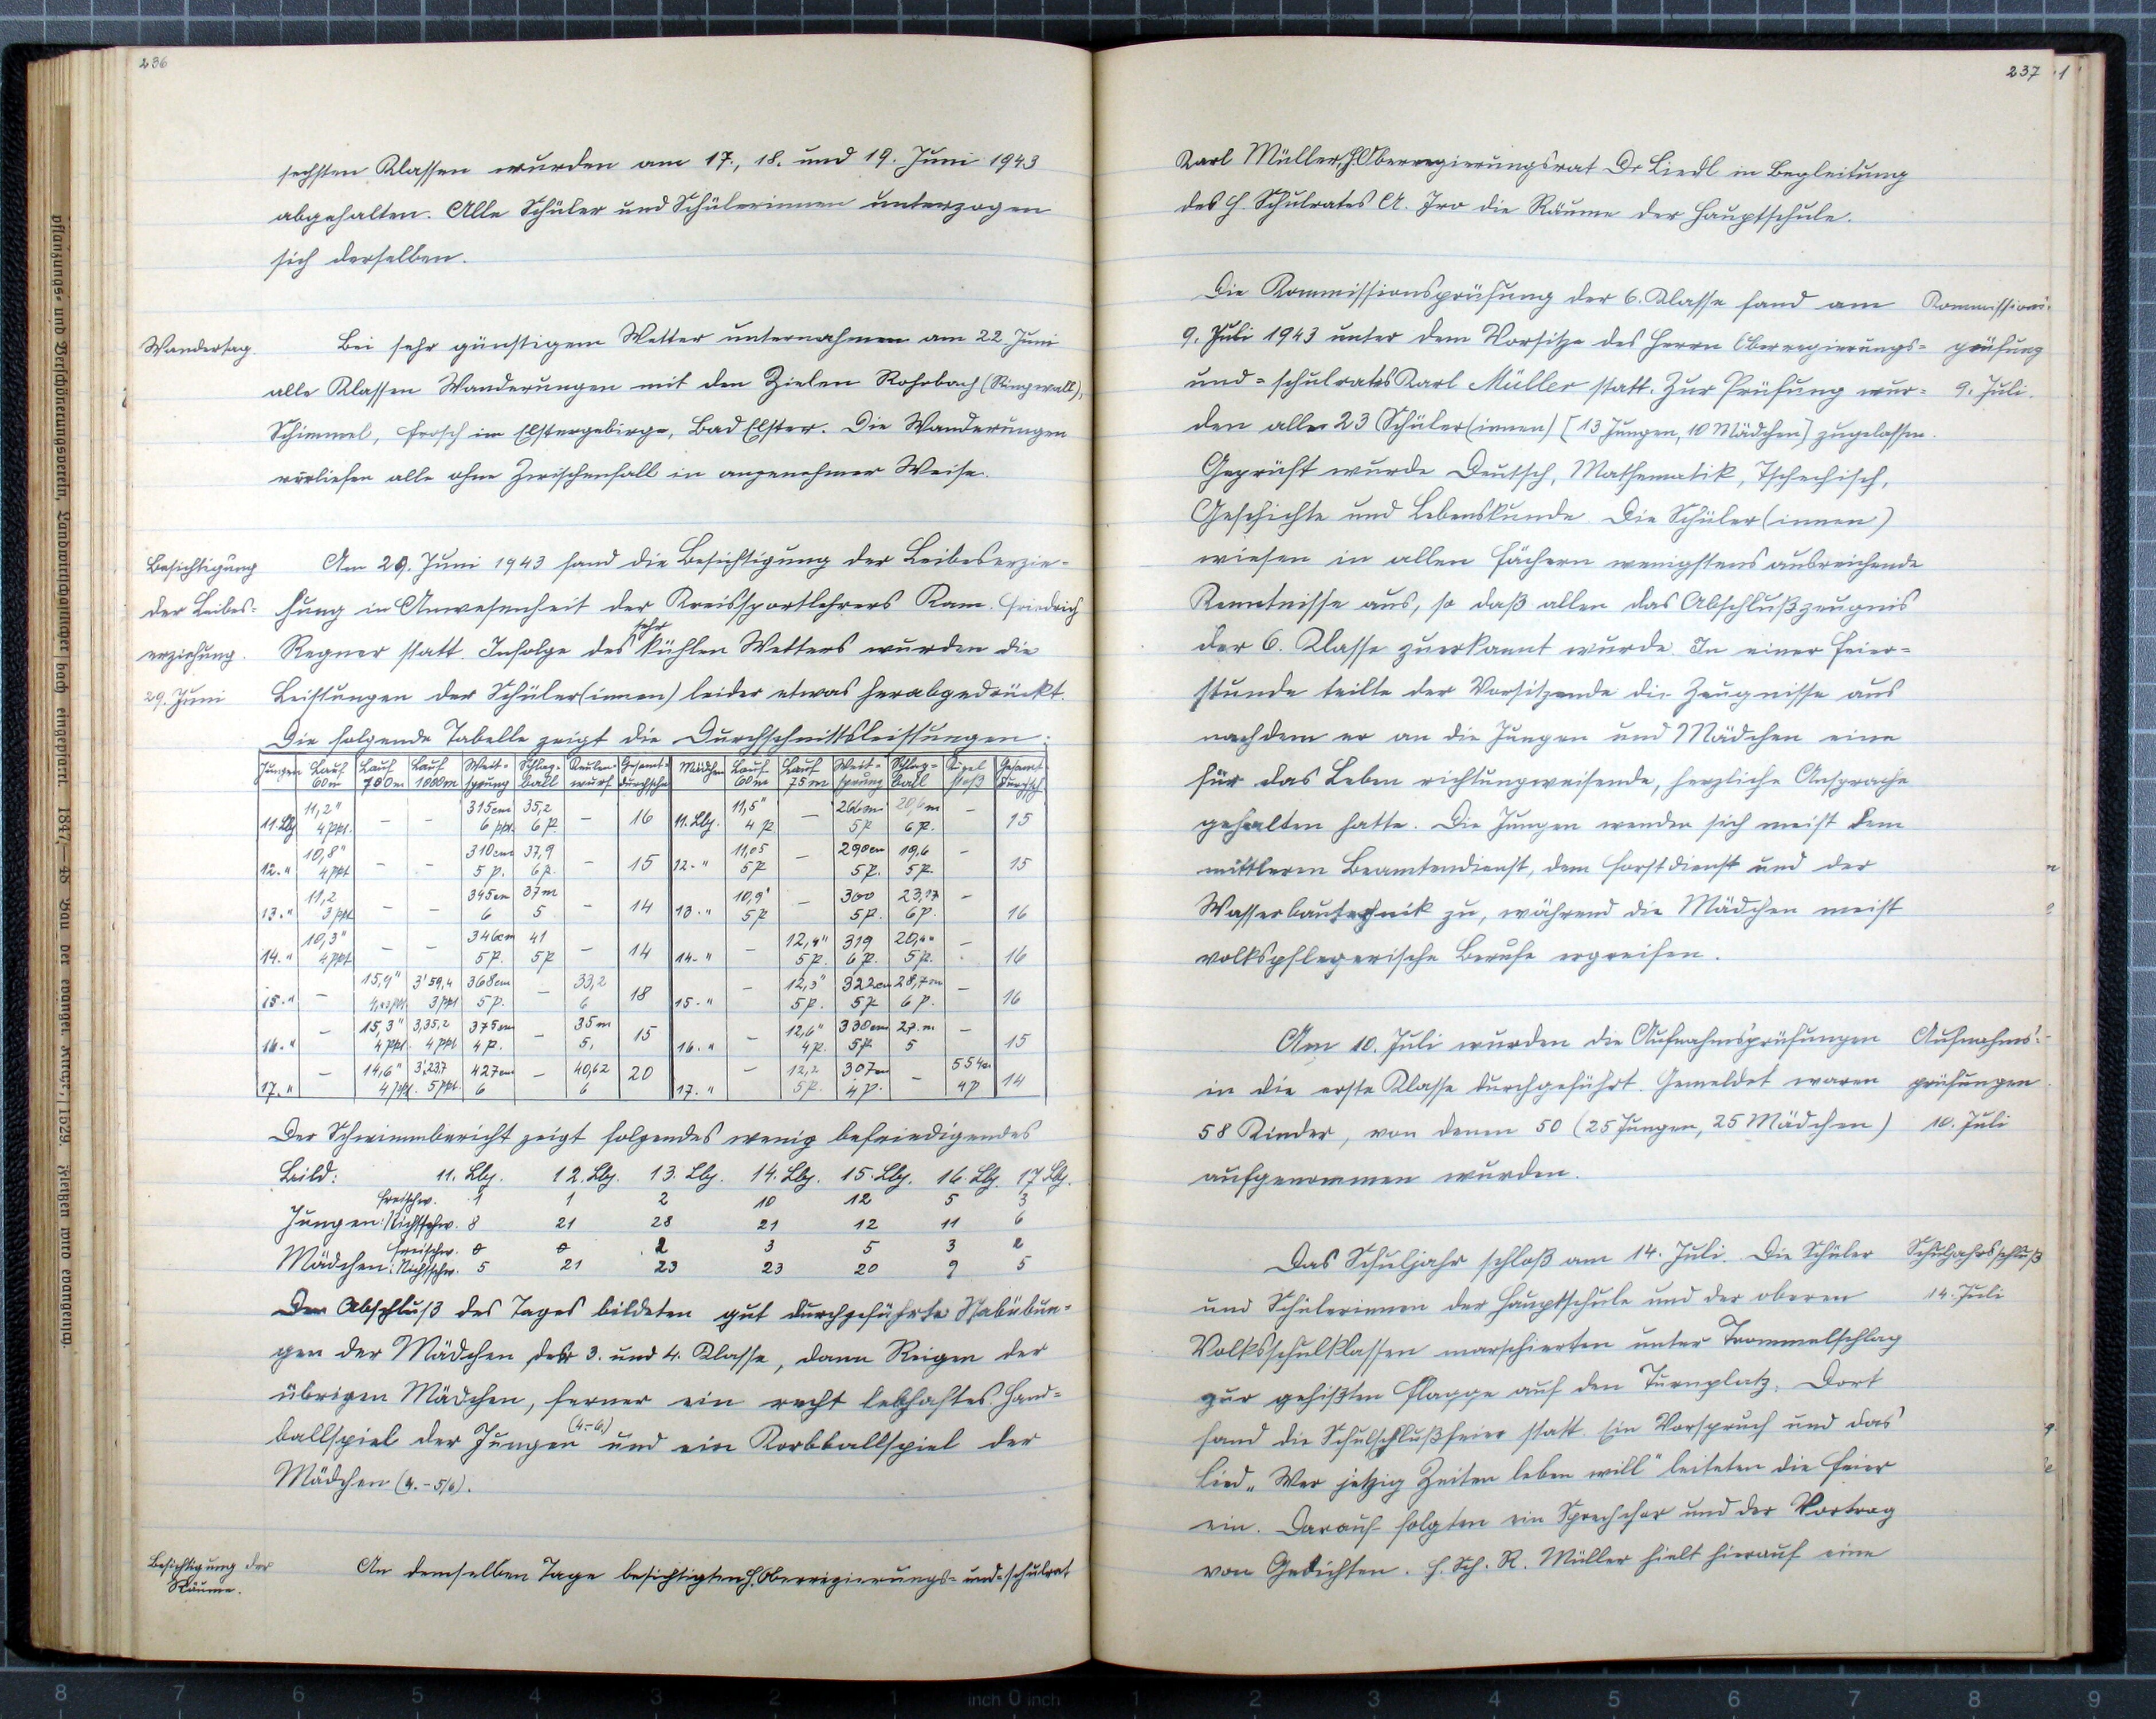 236
sechsten Klassen wurden am 17., 18. und 19. Juni 1943
abgehalten. Alle Schüler und Schülerinnen unterzogen
sich derselben.
Wandertag.
Bei sehr günstigem Wetter unternahmen am 22. Juni
alle Klassen Wanderungen mit den Zielen Rohrbach (Ringwall),
Schimmel, Frosch im Elstergebirge, Bad Elster. Die Wanderungen
verliefen alle ohne Zwischenfall in angenehmer Weise.
Besichtigung
der Leibes=
erziehung.
29. Juni
Am 29. Juni 1943 fand die Besichtigung der Leibeserzie=
hung in Anwesenheit der Kreissportlehrers Kam. Friedrich
Regner statt. Infolge des sehr kühlen Wetters wurden die
Leistungen der Schüler(innen) leider etwas herabgedrückt.
Die folgende Tabelle zeigt die Durchschnittsleistungen:
Jungen Lauf 60m Lauf 100m Lauf 1000m Weit=sprung Schlag=ball Keulen=wurf Gesamt=durchschn Mädchen Lauf 60m Lauf 75m Weit=sprung Schlag=ball Kugel stoß Gesamt Durchsch.
11. Lbj. 11,2" 4 Pkt. – – 315cm 6 Pkt. 35,2 6 P. – 16 11. Lbj. 11,5" 4 P – 266m 5P 20,6m 6P. – 15
12. " 10,8" 4 Pkt – – 310cm 5 P. 37,9 6 P. – 15 12. " 11,05 5P – 290cm 5P. 19,6 5P. – 15
13. " 11,2 3 Pkt – – 345cm 6 37m 5 – 14 13. " 10,9" 5P – 300 5P. 23,17 6P. – 16
14. " 10,3" 4 Pkt – – 346cm 5P. 41 5P – 14 14. " – 12,4" 5P. 319 6P. 20,4m 5P. – 16
15. " – 15,9" 3'59,4 3 Pkt 368cm 5P. – 33,2 6 18 15. " – 12,3" 5P. 322cm 5P 28,7m 6P. – 16
16. " – 15,3" 4 Pkt. 3,35,2 4 Pkt 375cm 4P. – 35m 5, 15 16. " – 12,6" 4P. 330cm 5P. 27.m 5 – 15
17. " – 14,6" 4 Pkt. 3'23,7 5 Pkt. 427cm 6 – 40,62 6 20 17. " – 12,2 5P. 307m 4P. – 4P 14
Der Schwimmbericht zeigt folgendes wenig befriedigendes
Bild: 11. Lbj. 12. Lbj. 13. Lbj. 14. Lbj. 15. Lbj. 16. Lbj. 17 Lbj.
Freischw. 1 1 2 10 12 5 3
Jungen: Nichtschw. 8 21 28 21 12 11 6
Freischw. 0 0 2 3 5 3 2
Mädchen: Nichtschw. 5 21 23 23 20 9 5
Den Abschluß des Tages bildeten gut durchgeführte Stabübun=
gen der Mädchen der 3. und 4. Klasse, dann Reigen der
übrigen Mädchen, ferner ein recht lebhaftes Hand=
ballspiel der Jungen (4.-6.) und ein Korbballspiel der
Mädchen (4.-5/6).
Besichtigung der
Räume.
An demselben Tage besichtigten H. Oberregierungs= und=schulrat
237
1
Karl Müller, H. Oberregierungsrat Dr Liedl in Begleitung
des H. Schulrates A. Iro die Räume der Hauptschule.
Die Kommissionsprüfung der 6. Klasse fand am
9. Juli 1943 unter dem Vorsitze des Herrn Oberregierungs=
und=schulrates Karl Müller statt. Zur Prüfung wur=
den alle 23 Schüler(innen) [13 Jungen, 10 Mädchen] zugelassen.
Kommissions=
prüfung
9. Juli.
Geprüft wurde Deutsch, Mathematik, Tschechisch,
Geschichte und Lebenskunde. Die Schüler(innen)
wiesen in allen Fächern wenigstens ausreichende
Kenntnisse aus, so daß allen das Abschlußzeugnis
der 6. Klasse zuerkannt wurde. In einer Feier=
stunde teilte der Vorsitzende die Zeugnisse aus
nachdem er an die Jungen und Mädchen eine
für das Leben richtungweisende, herzliche Ansprache
gehalten hatte. Die Jungen wenden sich meist dem
mittleren Beamtendienst, dem Forstdienst und der
Wasserbautechnik zu, während die Mädchen meist
volkspflegerische Berufe ergreifen.
Am 10. Juli wurden die Aufnahmsprüfungen
in die erste Klasse durchgeführt. Gemeldet waren
58 Kinder, von denen 50 (25 Jungen, 25 Mädchen)
aufgenommen wurden.
Aufnahms=
prüfungen
10. Juli
Das Schuljahr schloß am 14. Juli. Die Schüler
und Schülerinnen der Hauptschule und der oberen
Volksschulklassen marschierten unter Trommelschlag
zur gehißten Flagge auf den Turnplatz. Dort
fand die Schulschlußfeier statt. Ein Vorspruch und das
Lied „Wer jetzig Zeiten leben will" leiteten die Feier
ein. Darauf folgten ein Sprechchor und der Vortrag
von Gedichten. H. Sch. R. Müller hielt hierauf eine
Schuljahrsschluß
14. Juli
8 7 6 5 4 3 2 1 inch 0 inch 1 2 3 4 5 6 7 8 9